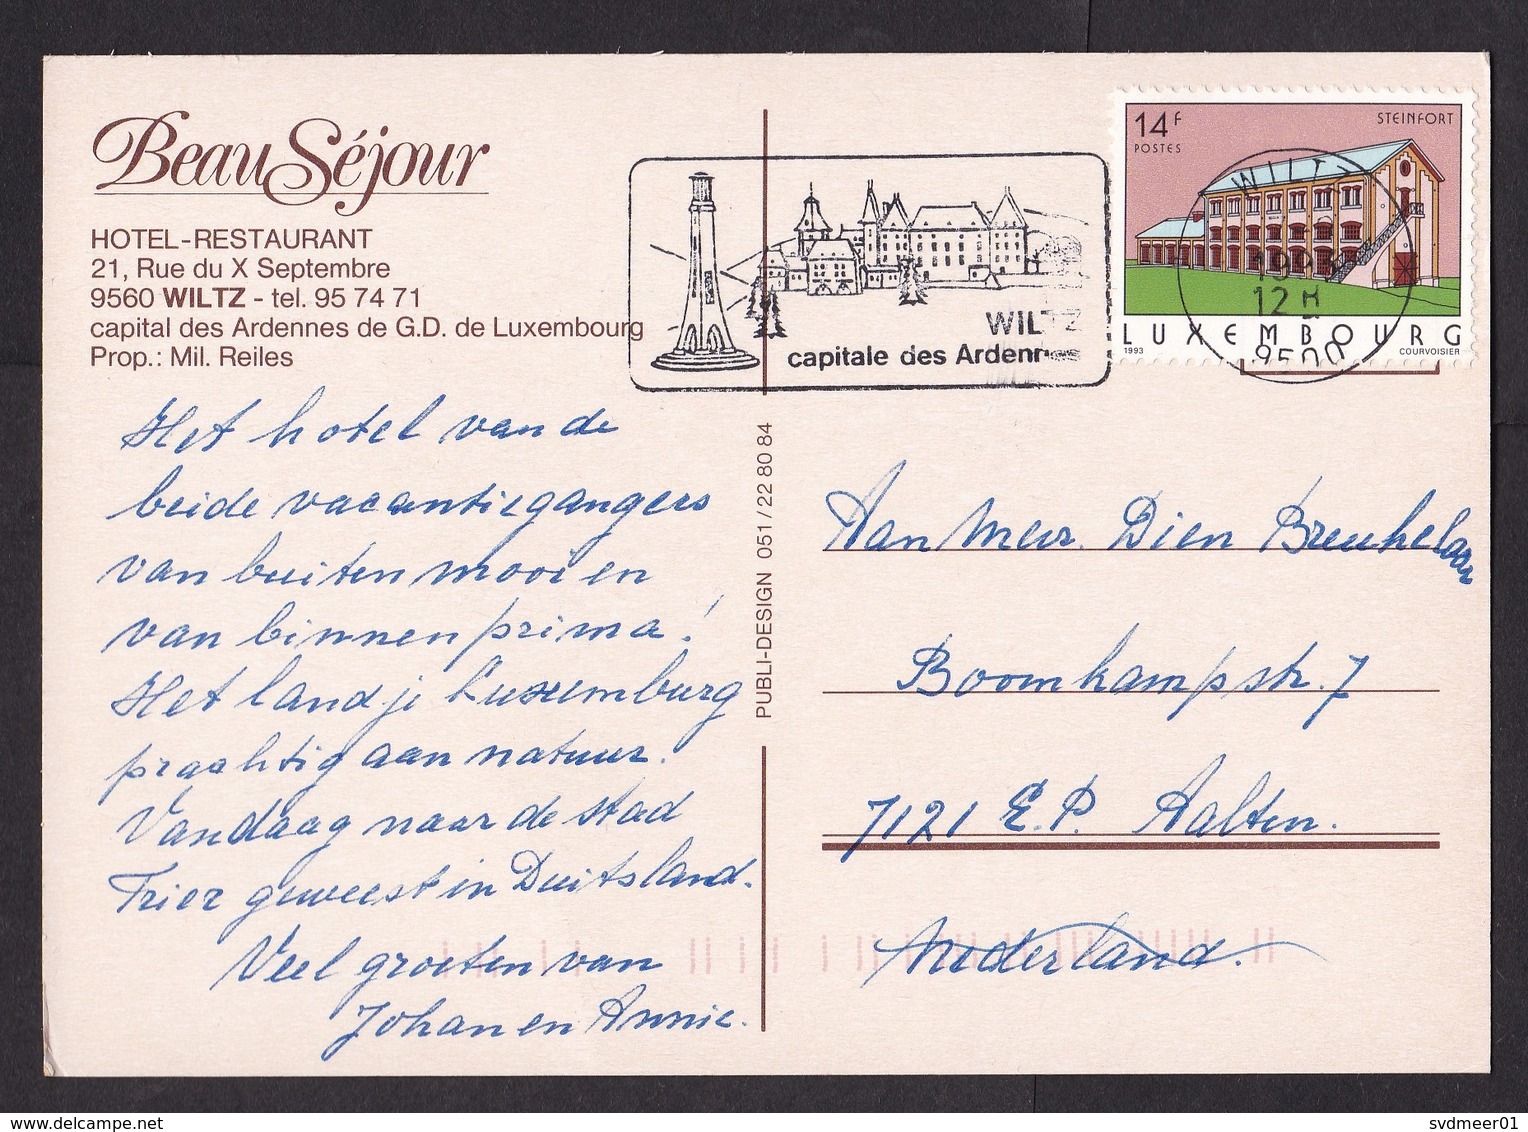 Beau Séjour
HOTEL-RESTAURANT
21, Rue du X Septembre
9560 WILTZ - tel. 95 74 71
capital des Ardennes de G.D. de Luxembourg
Prop.: Mil. Reiles
Het hotel van de
beide vacantiegangers
van buiten mooi en
van binnen prima!
Het landje Luxemburg
prachtig aan natuur.
Vandaag naar de stad
Trier geweest in Duitsland.
Veel groeten van
Johan en Annie.
PUBLI-DESIGN 051 / 22 80 84
WILTZ
capitale des Ardennes
14F
POSTES
STEINFORT
WILTZ
12H
9500
LUXEMBOURG
1993
COURVOISIER
Aan Mevr. Dien Breukelaar
Boomkampstr. 7
7121 E.P. Aalten.
Nederland.
delcampe.net
svdmeer01